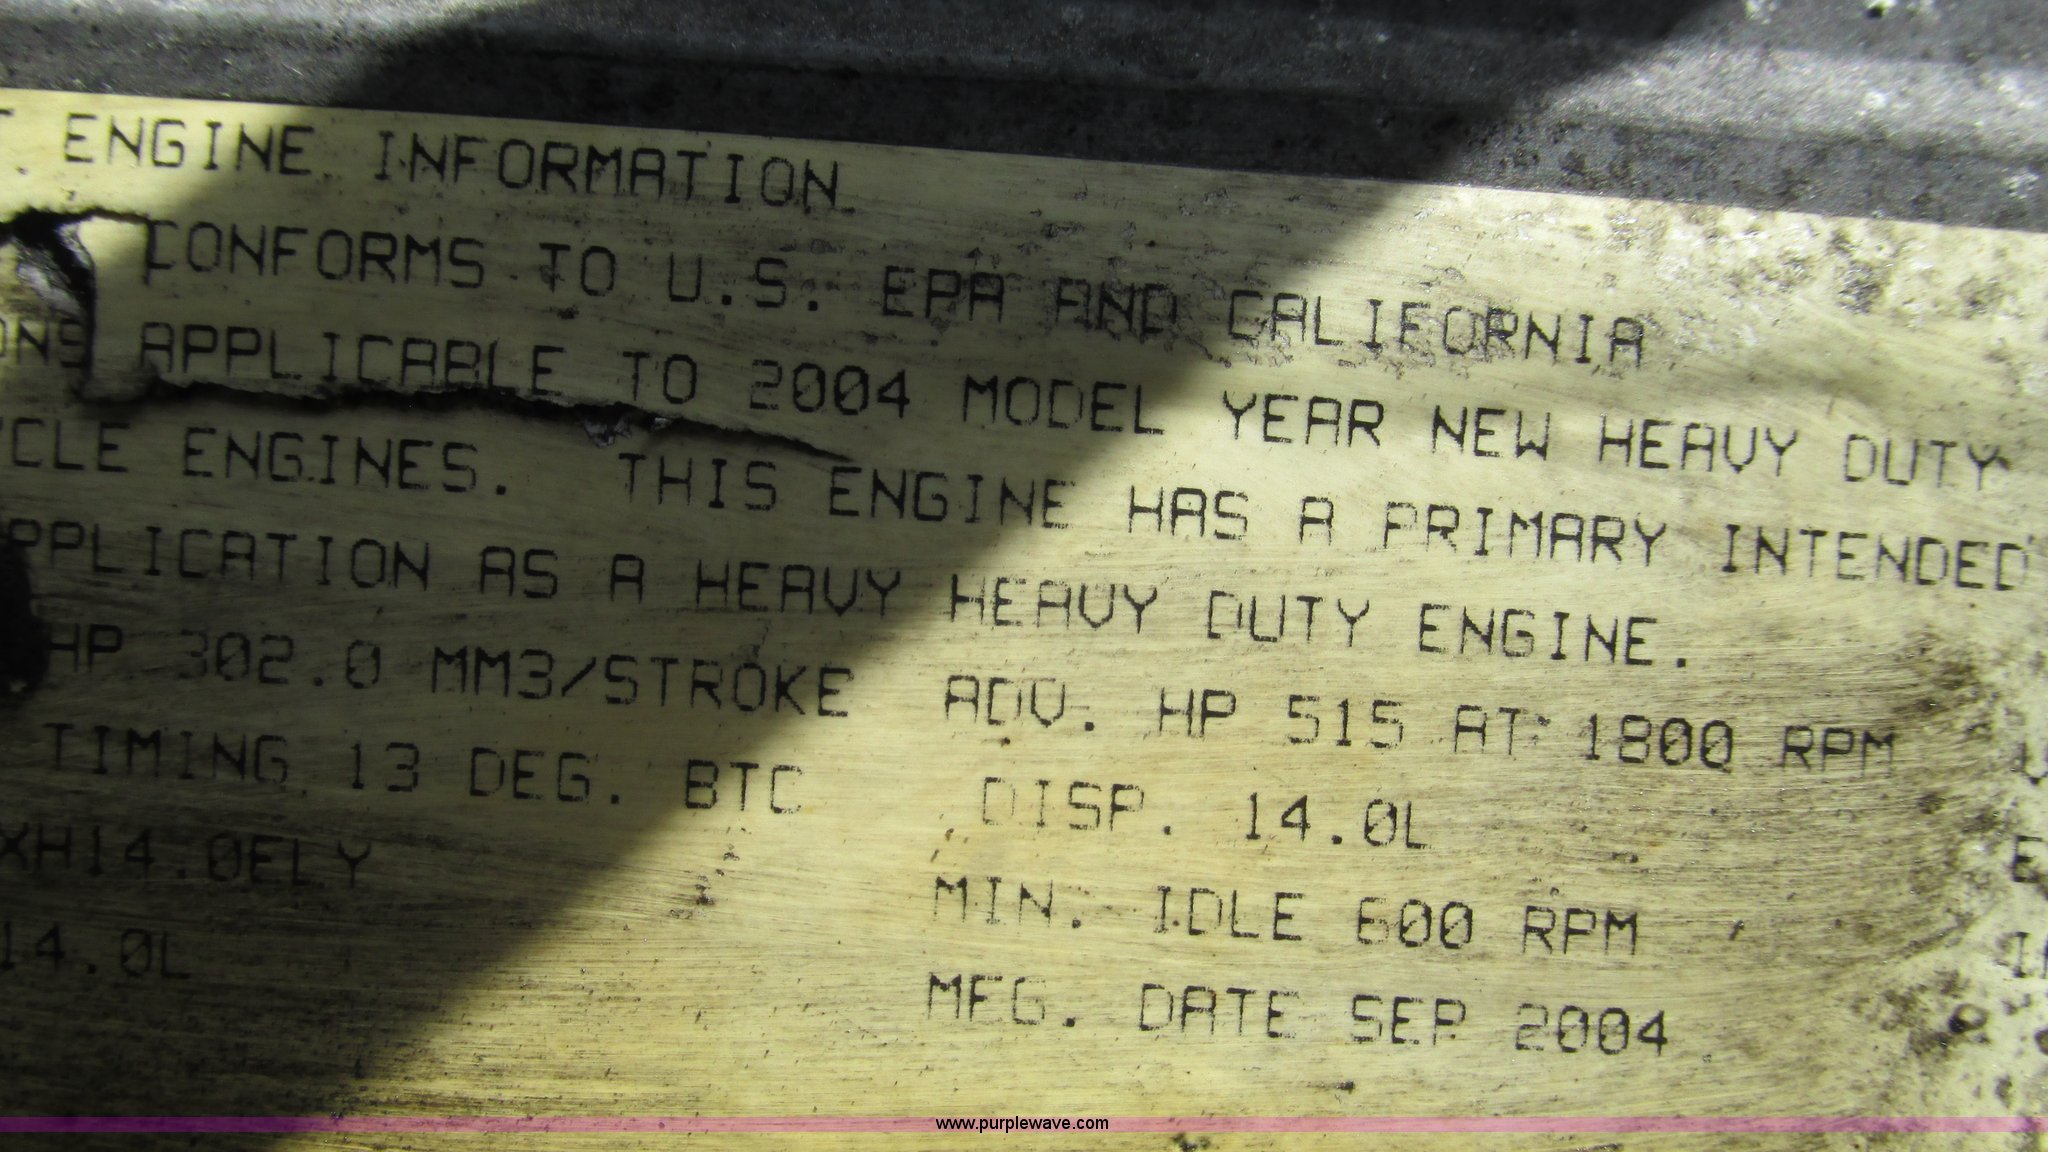 T ENGINE INFORMATION
CONFORMS TO U.S. EPA AND CALIFORNIA
ONS APPLICABLE TO 2004 MODEL YEAR NEW HEAVY DUTY
YCLE ENGINES. THIS ENGINE HAS A PRIMARY INTENDED
PPLICATION AS A HEAVY HEAVY DUTY ENGINE.
HP 302.0 MM3/STROKE ADV. HP 515 AT 1800 RPM
TIMING 13 DEG. BTC DISP. 14.0L
XH14.0ELY MIN. IDLE 600 RPM
14.0L MFG. DATE SEP 2004
www.purplewave.com